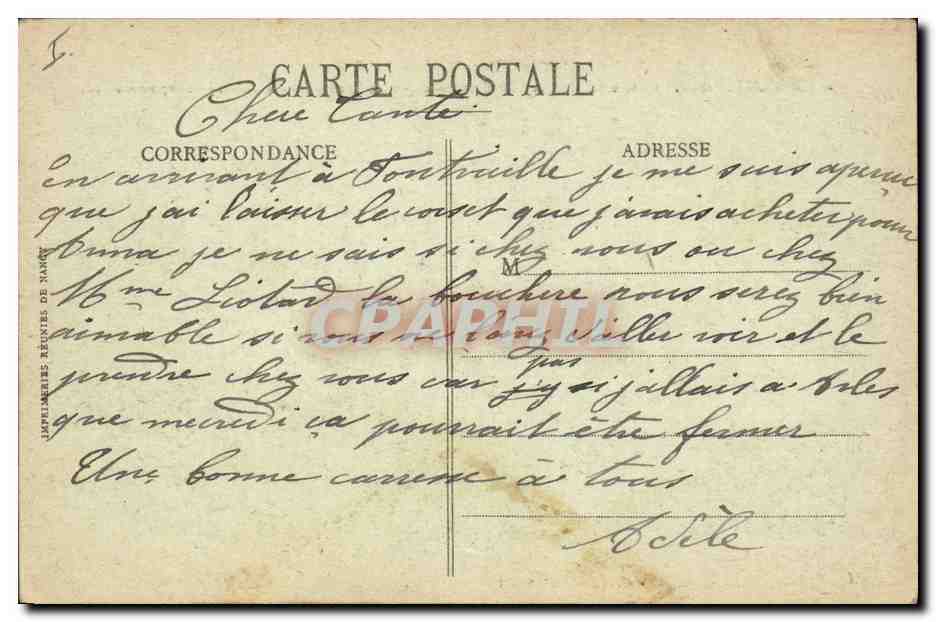 CARTE POSTALE
Chere Tante
CORRESPONDANCE
ADRESSE
En arrivant à Fontvieille je me suis aperçue
que jai laisser le corset que j'avais acheter pour
Anna je ne sais si chez vous ou chez
M
Mme Liotard la bouchere vous serez bien
aimable si vous ne l'avez d'aller voir et le
CPAPHIL
pas
prendre chez vous car si j'allais a Arles
que mecredi ça pourrait être fermer
Une bonne caresse à tous
Adèle
IMPRIMERIES RÉUNIES DE NANCY